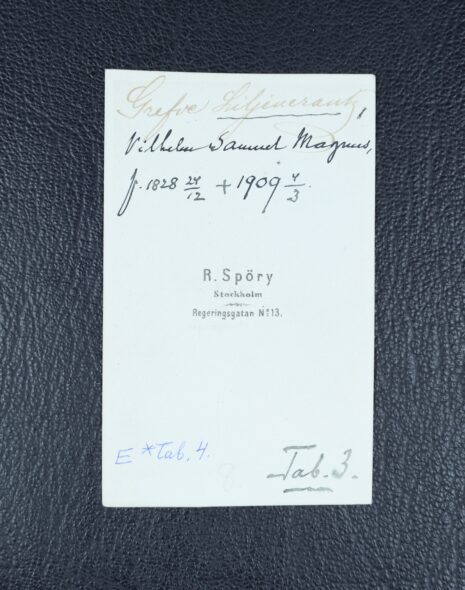 Grefve Liljencrantz,
Vilhelm Samuel Magnus,
f. 1828 24/12 + 1909 4/3.
R. Spöry
Stockholm
Regeringsgatan Nº 13.
E *Tab. 4.
8.
Tab. 3.